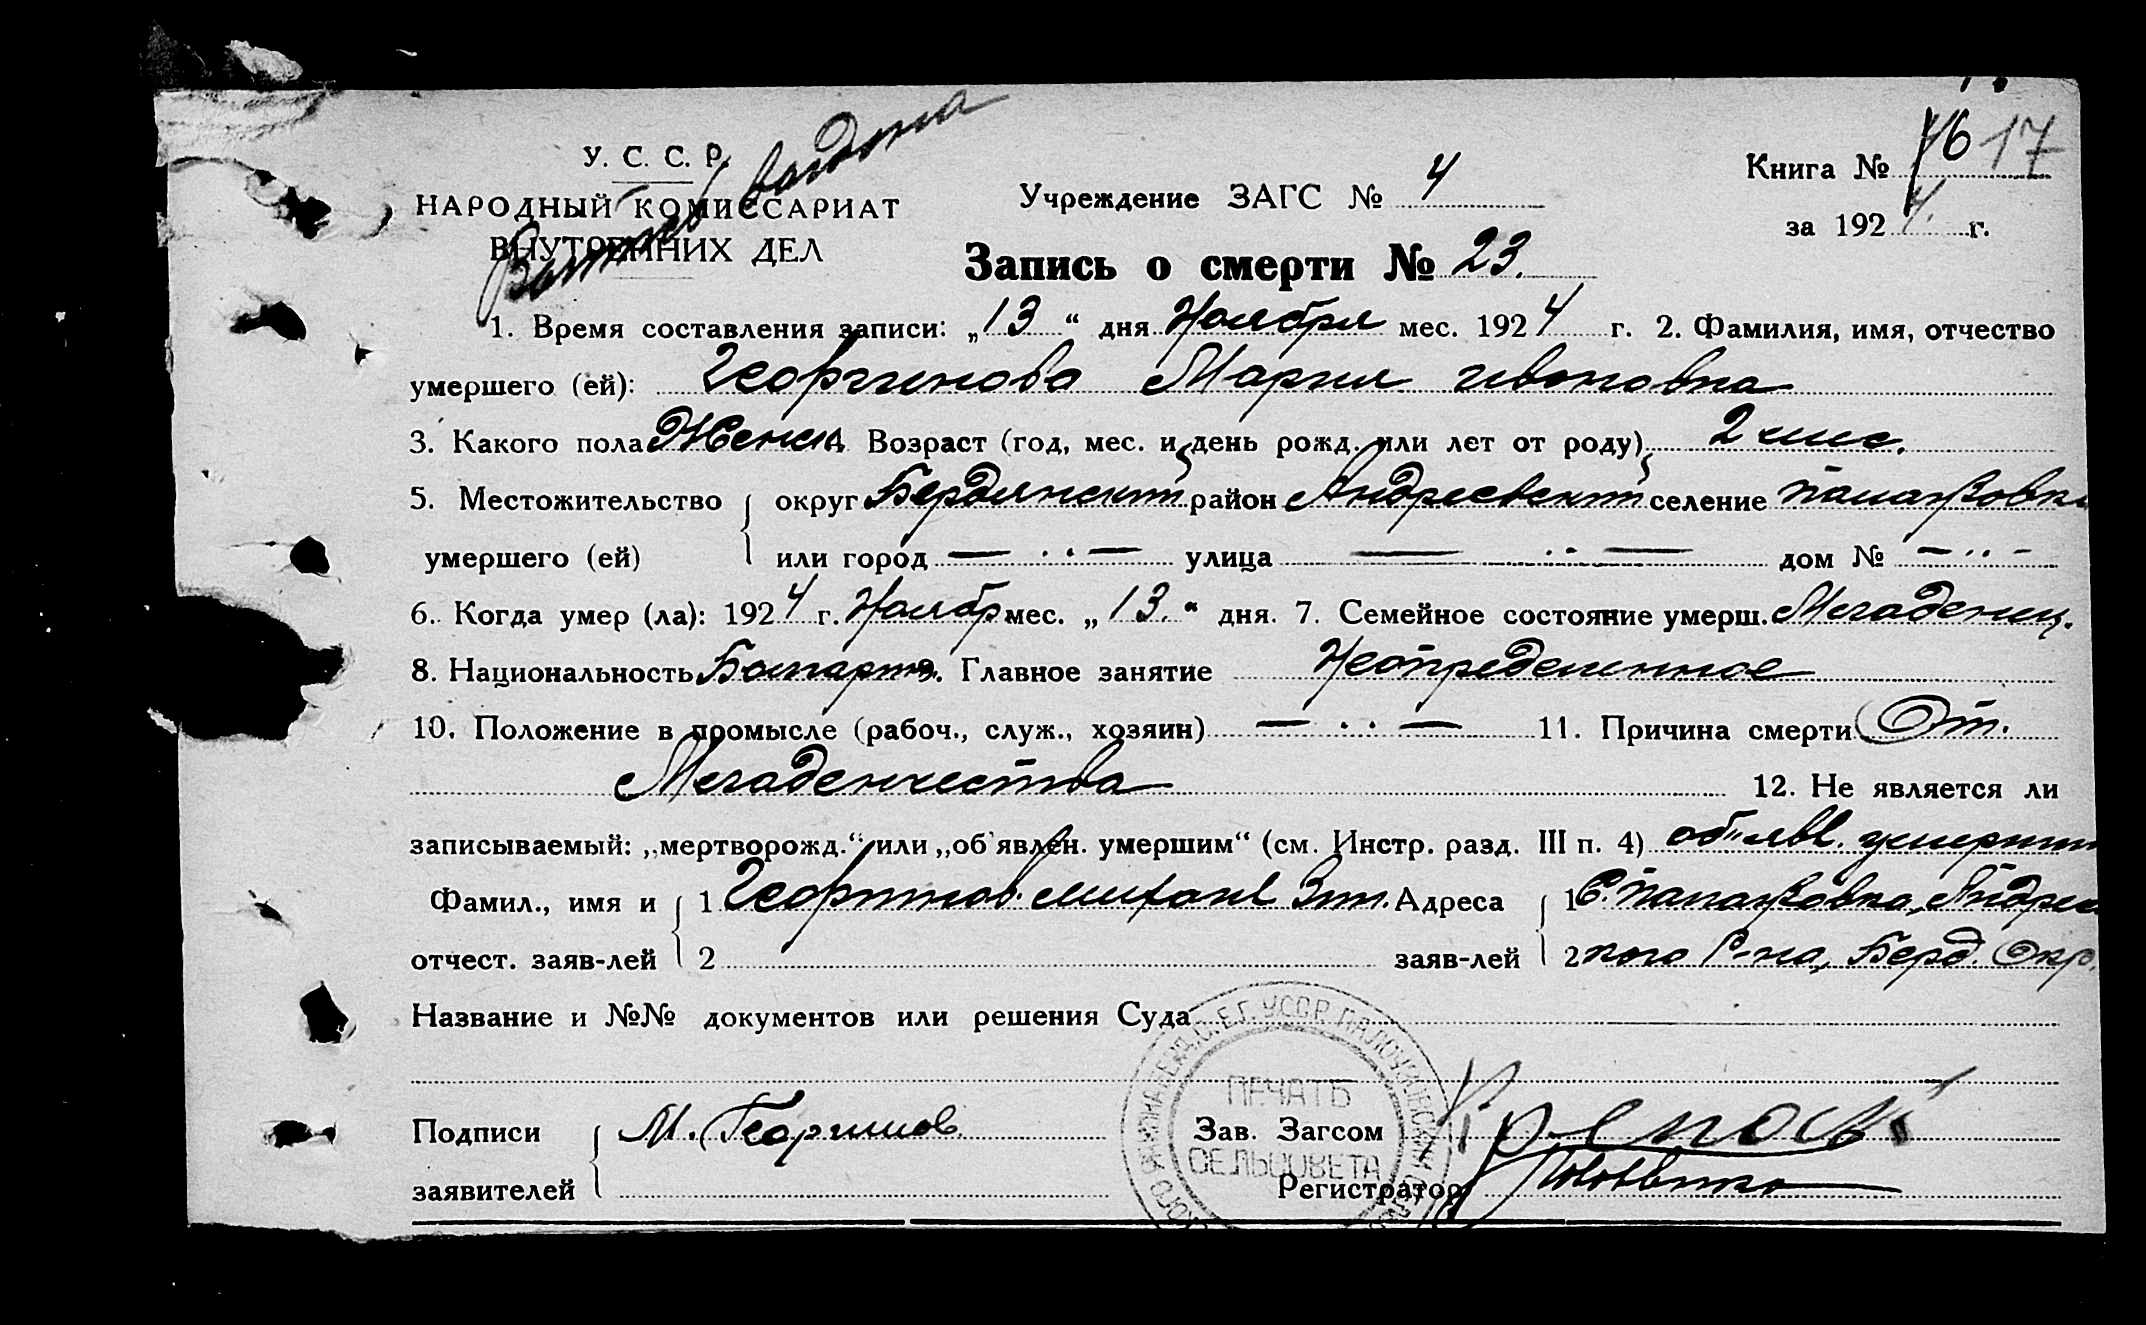 17
У. С. С. Р.
Книга № 16
НАРОДНЫЙ КОМИССАРИАТ
Учреждение ЗАГС № 4
за 1924 г.
ВНУТРЕННИХ ДЕЛ
Запись о смерти № 23.
1. Время составления записи: „13“ дня Ноября мес. 1924 г. 2. Фамилия, имя, отчество
умершего (ей): Георгинова Мария ивановна
3. Какого пола Женск. 4. Возраст (год, мес. и день рожд. или лет от роду) 2 мес.
5. Местожительство округ Бердянский район Андреевский селение
умершего (ей) или город — ·· — улица — ·· — дом № — ·· -
6. Когда умер (ла): 1924 г. Ноябр мес. „13.“ дня. 7. Семейное состояние умерш. Младенец.
8. Национальность Болгарка 9. Главное занятие Неопределенное
10. Положение в промысле (рабоч., служ., хозяин) — ·· — 11. Причина смерти От.
Младенчества 12. Не является ли
записываемый: „мертворожд.“ или „об'явлен. умершим“ (см. Инстр. разд. III п. 4) об"явл. умершим
Фамил., имя и 1 Георгинов. михаил Адреса 1 С.
отчест. заяв-лей 2 заяв-лей 2 кого Р-на, Берд. Окр.
Название и №№ документов или решения Суда
Подписи М. Георгинов Зав. Загсом
заявителей Регистратор
ПЕЧАТЬ
СЕЛЬСОВЕТА